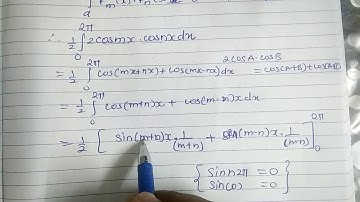 ∴ 1/2 ∫₀^{2π} 2cosmx · cosnx dx
2cosA · cosB
= 1/2 ∫₀^{2π} cos(mx+nx) + cos(mx-nx) dx = cos(A+B) + cos(A-B)
= 1/2 ∫₀^{2π} cos(m+n)x + cos(m-n)x dx
= 1/2 [ sin(m+n)x · 1/(m+n) + sin(m-n)x · 1/(m-n) ]₀^{2π}
{ sin n2π = 0
sin(0) = 0 }